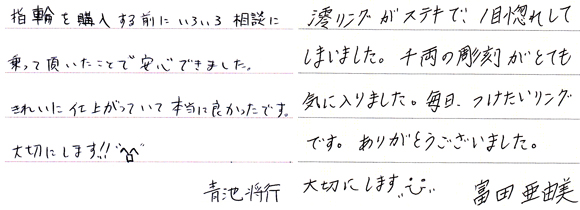 指輪を購入する前にいろいろ相談に
乗って頂いたことで安心できました。
きれいに仕上がっていて本当に良かったです。
大切にします!!
青池将行
澪リングがステキで、1目惚れして
しまいました。千両の彫刻がとても
気に入りました。毎日、つけたいリング
です。ありがとうございました。
大切にします
富田亜由美